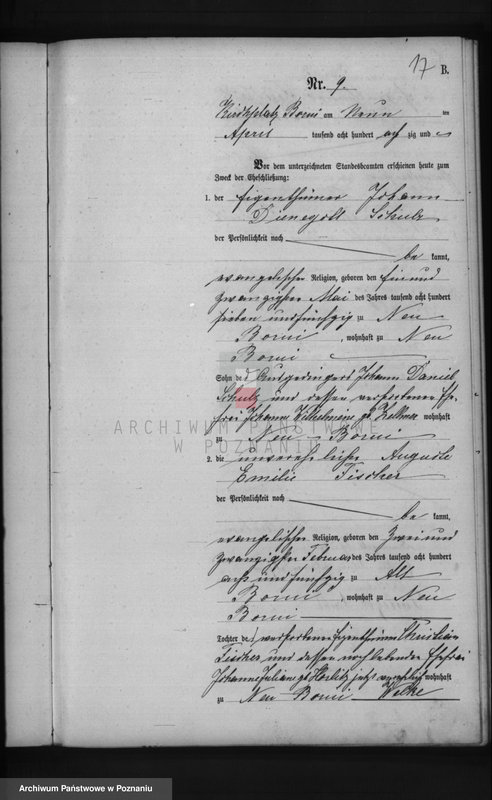 17
B.
Nr. 9.
Kirchplatz Borui am neun ten
April tausend acht hundert achtzig und
Vor dem unterzeichneten Standesbeamten erschienen heute zum
Zweck der Eheschließung:
1. der Eigenthümer Johann
Dienegott Schulz
der Persönlichkeit nach
be kannt,
evangelischer Religion, geboren den ein und
zwanzigsten Mai des Jahres tausend acht hundert
sieben und fünfzig zu Neu
Borui, wohnhaft zu Neu
Borui
Sohn des Ausgedingers Johann Daniel
Schulz und dessen verstorbenen Ehe-
frau Johanne Wilhelmine wohnhaft
ARCHIWUM PAŃSTWOWE
W POZNANIU
zu Neu Borui
2. die unverehelichte Auguste
Emilie Fischer
der Persönlichkeit nach
be kannt,
evangelischer Religion, geboren den zwei und
zwanzigsten Februar des Jahres tausend acht hundert
acht und fünfzig zu Alt
Borui, wohnhaft zu Neu
Borui
Tochter des verstorbenen Eigenthümers Christian
Fischer und dessen noch lebenden Ehefrau
Johanne Juliane Horlitz jetzt wohnhaft
zu Neu Borui Welke
Archiwum Państwowe w Poznaniu